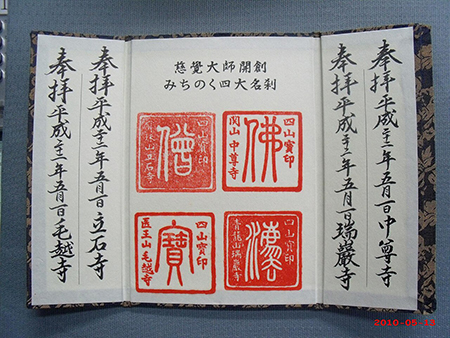 慈覺大師開創
みちのく四大名刹
四山寳印
佛
関山 中尊寺
四山寳印
僧
立石寺
四山寳印
青龍山瑞巌寺
四山寳印
寳
医王山 毛越寺
奉拝 平成二十二年五月 日 中尊寺
奉拝 平成二十二年五月 日 瑞巌寺
奉拝 平成二十二年五月 日 立石寺
奉拝 平成二十二年五月 日 毛越寺